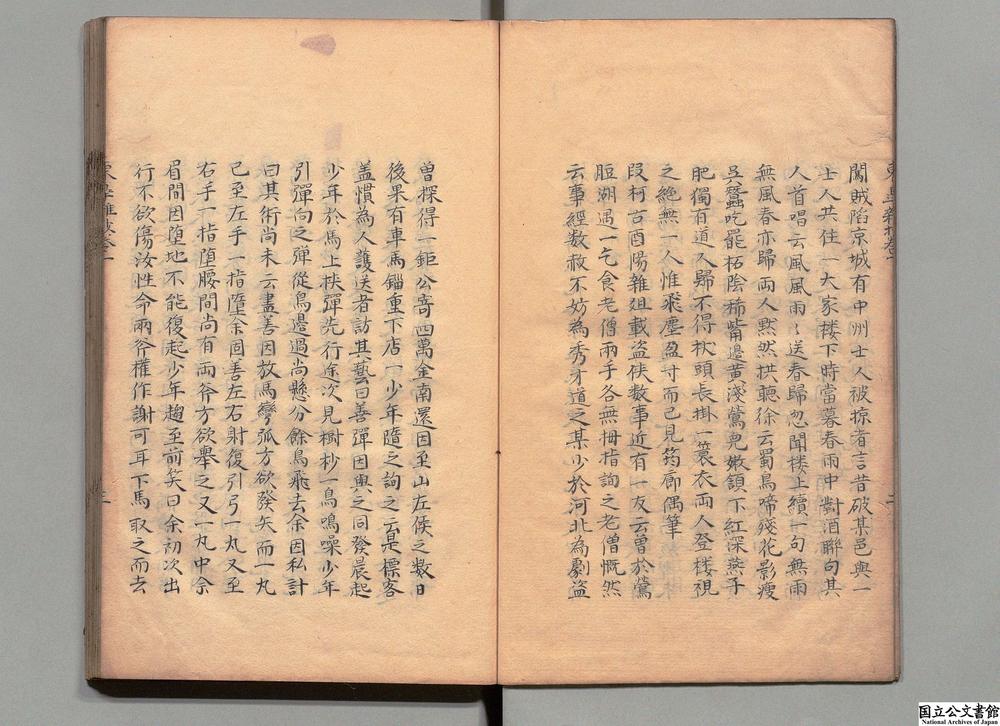 闖賊陷京城有中州士人被掠者言昔破某邑與一
士人共住一大家楼下時當暮春雨中對酒聯句其
人首唱云風風雨〻送春歸忽聞楼上續一句無雨
無風春亦歸兩人黙然拱聽徐云蜀鳥啼殘花影瘦
吳蠶吃罷柘陰稀觜邊黃淺鶯兒嫩頷下紅深燕子
肥獨有道人歸不得枕頭長掛一簑衣両人登楼視
之絶無一人惟飛塵盈寸而已見筠廊偶筆
段柯古酉陽雜俎載盗俠数事近有一友云曽於鶯
脰湖遇一乞食老僧兩手各無拇指詢之老僧慨然
云事經数赦不妨為秀才道之某少於河北為劇盗
曽探得一鉅公寄四萬金南還因至山左候之数日
後果有車馬錙重下店一少年隨之詢之云是標客
盖慣為人護送者訪其藝曰善彈因與之同發晨起
少年於馬上挾彈先行途次見樹杪一鳥鳴噪少年
引彈向之彈從鳥邊過尚懸分餘鳥飛去余因私計
曰其術尚未云盡善因放馬彎弧方欲發矢而一丸
已至左手一指墮余固善左右射復引弓一丸又至
右手一指堕腰間尚有兩斧方欲舉之又一丸中余
眉間因堕地不能復起少年趨至前笑曰余初次出
行不欲傷汝性命兩斧權作謝可耳下馬取之而去